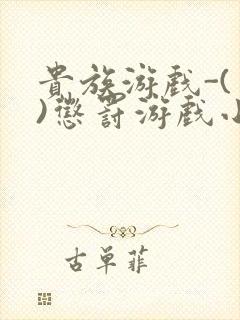 貴族游戲-(
)懲罰游戲小
古單菲